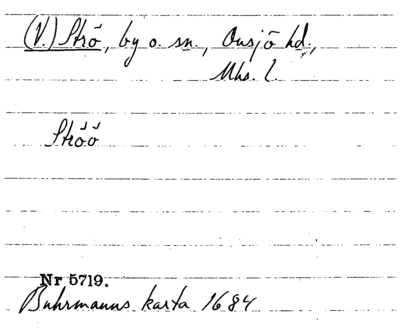 (V.) Strö, by o. sn., Onsjö hd.,
Mhs. l.
Ströö
Nr 5719.
Buhrmanns karta 1684